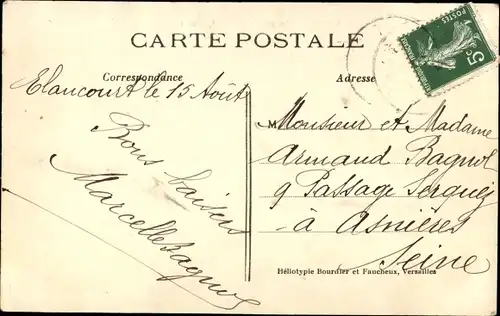 CARTE POSTALE
Correspondance
Adresse
POSTES
5c
Elancourt le 15 Août
Bons baisers
Marcelle Bagnol
Monsieur et Madame
Armand Bagnol
9 Passage
à Asnières
Seine
Héliotypie Bourdier et Faucheux, Versailles